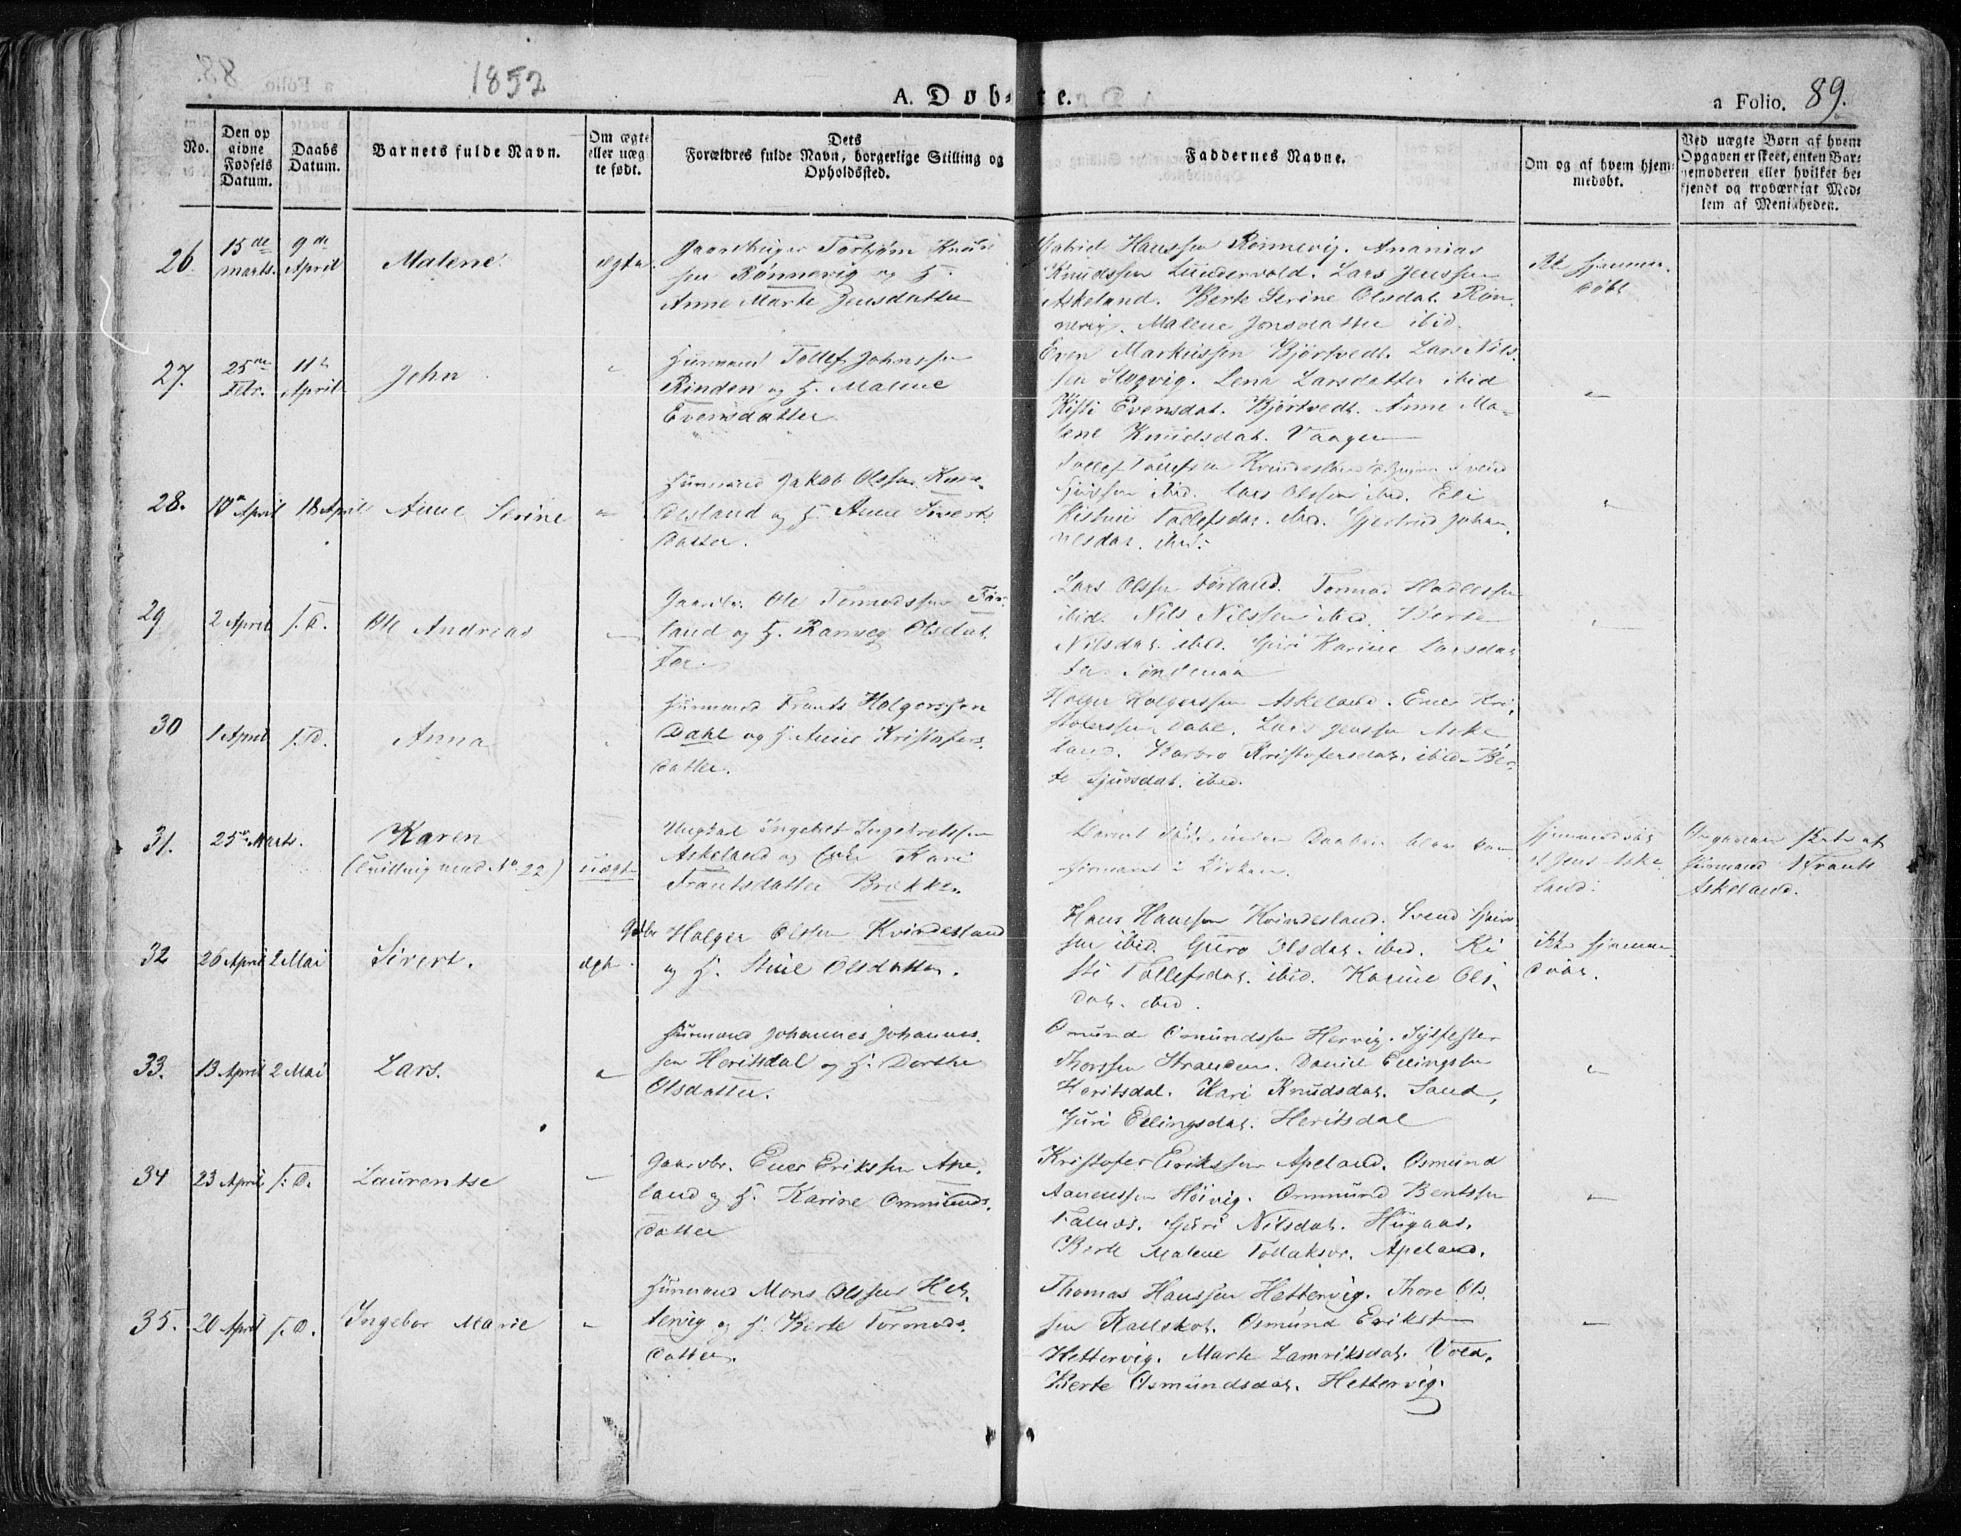 1852
A. Døb- te.
a Folio. 89.
No.
Den op
givne
Fødsels
Datum.
Daabs
Datum.
Barnets fulde Navn.
Om ægte
eller uæg
te født.
Dets
Forældres fulde Navn, borgerlige Stilling og
Opholdssted.
Faddernes Navne.
Om og af hvem hjem-
medøbt.
Ved uægte Børn af hvem
Opgaven er skeet, enten Bar-
nemoderen eller hvilket be-
kjendt og troværdigt Med-
lem af Menigheden.
26
15de
Marts.
9de
April
Malene
ægte
Gaardbruger Torbjørn Knud
sen Rönnevig og H.
Anne Marte Jensdatter
Hanssen Rönnevig. Ananias
Knudssen Lundervold. Lars Jenssen
Askeland. Berte Serine Olsdat. Rön-
nevig. Malene Jonsdatter ibid.
Ik hjemme-
døbt
27.
25de
Febr.
11te
April
John
"
Huusmand Tollef Johnssen
Rinden og H. Malene
Evensdatter
Even Markussen Bjørtvedt. Lars Nils-
sen Slogvig. Lena Larsdatter ibid
Kisti Evensdat. Bjørtvedt. Anne Ma-
lene Knudsdat. Vaagen
"
28.
10de April
18 April
Anne Serine
"
Huusmand Jakob Olssen Kvin-
desland og H. Anne Siverts
datter.
Tollef Tollefsen Kvindesland Svend
Sjurssen ibid. Lars Olssen ibid. Eli
Kistine Tollefsdat. ibid. Gjertrud Johan-
nesdat. ibid.
"
29
2 April
s. D.
Ole Andreas
"
Gaardbr. Ole Tormodssen Før-
land og H. Ranveg Olsdat
Lars Olssen Førland. Tormod Hadlessen
ibid. Nils Nilssen ibid. Berte
Nilsdat. ibid. Guri Karine Larsdat
"
30
1 April
s. D.
Anna
"
Huusmand Frants Holgerssen
Dahl og H. Anne Kristofers-
datter.
Holger Holgerssen Askeland. Ener Kri-
stoferssen Dahl. Lars Jenssen Aske
land. Barbro Kristofersdat. ibid. Ber-
te Sjursdat. ibid.
31.
25de Marts.
Karen
(Tvilling med No 22)
uægte
Ungkarl Ingebret Ingebretssen
Askeland og Kari
Frantsdatter Brekke.
Barnet døde inden Daaben blev kon
firmeret i Kirken.
hjemmedøbt
af Jens Aske
land.
Opgaven skete af
Huusmand Frants
Askeland.
32
26 April
2 Mai
Sivert.
ægte
Gdbr Holger Olssen Kvindesland
og H. Stine Olsdatter.
Hans Hanssen Kvindesland. Svend Sjurs
sen ibid. Guro Olsdat. ibid. Ki
sti Tollefsdat. ibid. Karine Ols-
dat. ibid.
ikke hjemme-
døbt.
33.
13 April
2 Mai
Lars.
"
Huusmand Johannes Johannes-
sen Heritsdal og H. Dorthe
Olsdatter.
Omund Omundssen Hervig. Sylfester
Thorssen Stranden. Daniel Ellingsen
Heritsdal. Kari Knudsdat. Sand,
Guri Ellingsdat. Heritsdal
"
34
23 April
s. D.
Laurentse
"
Gaardbr. Ener Erikssen Ape-
land og H. Karine Ommunds-
datter
Kristofer Erikssen Apeland. Osmund
Aanenssen Høivig. Ommund Bentssen
Falnes. Guri Nilsdat. Hügaas.
Berte Malene Tollaksdr. Apeland.
"
35.
20 April
s. D.
Ingebor Marie
"
Huusmand Mons Olssen Het-
tervig og H. Berte Tormods-
datter.
Thomas Hanssen Hettervig. Thore Ols-
sen Kallekot. Osmund Erikssen
Hettervig. Marte Lamriksdat. Vold.
Berte Osmundsdat. Hettervig.
"